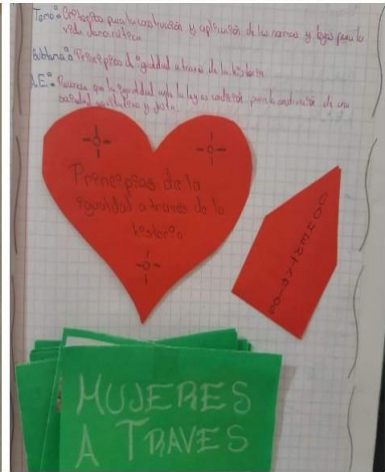 Tema: Criterios para la construcción y aplicación de las normas y leyes para la
vida democrática
Subtema: Principios de igualdad a través de la historia
A.E: Reconoce que la igualdad ante la ley es condición para la construcción de una
sociedad equitativa y justa.
Principios de la
igualdad a traves de la
historia
MUJERES
A TRAVES